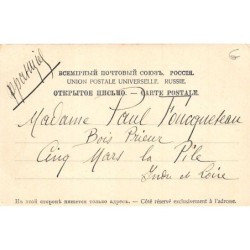 франція
ВСЕМІРНЫЙ ПОЧТОВЫЙ СОЮЗЪ. РОССІЯ.
UNION POSTALE UNIVERSELLE. RUSSIE.
ОТКРЫТОЕ ПИСЬМО. — CARTE POSTALE.
Madame Paul Foucqueteau
Bois Prieur
Cinq Mars la Pile
Indre et Loire
На этой сторонѣ пишется только адресъ. — Côté réservé exclusivement à l'adresse.